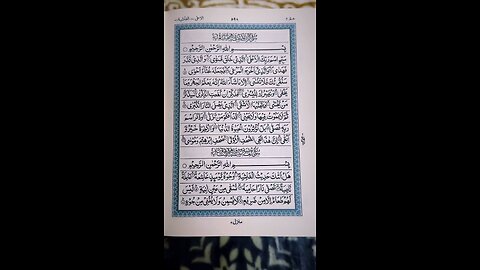 ٥٩٨
بِسْمِ اللّٰهِ الرَّحْمٰنِ الرَّحِيْمِ
سَبِّحِ اسْمَ رَبِّكَ الْاَعْلَى الَّذِيْ خَلَقَ فَسَوّٰى وَالَّذِيْ قَدَّرَ
فَهَدٰى وَالَّذِيْ اَخْرَجَ الْمَرْعٰى فَجَعَلَهٗ غُثَآءً اَحْوٰى
سَنُقْرِئُكَ فَلَا تَنْسٰى اِلَّا مَا شَآءَ اللّٰهُ اِنَّهٗ يَعْلَمُ الْجَهْرَ وَمَا
يَخْفٰى وَنُيَسِّرُكَ لِلْيُسْرٰى فَذَكِّرْ اِنْ نَّفَعَتِ الذِّكْرٰى سَيَذَّكَّرُ
مَنْ يَّخْشٰى وَيَتَجَنَّبُهَا الْاَشْقَى الَّذِيْ يَصْلَى النَّارَ الْكُبْرٰى
ثُمَّ لَا يَمُوْتُ فِيْهَا وَلَا يَحْيٰى قَدْ اَفْلَحَ مَنْ تَزَكّٰى وَذَكَرَ اسْمَ
رَبِّهٖ فَصَلّٰى بَلْ تُؤْثِرُوْنَ الْحَيٰوةَ الدُّنْيَا وَالْاٰخِرَةُ خَيْرٌ وَّ
اَبْقٰى اِنَّ هٰذَا لَفِي الصُّحُفِ الْاُوْلٰى صُحُفِ اِبْرٰهِيْمَ وَمُوْسٰى
بِسْمِ اللّٰهِ الرَّحْمٰنِ الرَّحِيْمِ
هَلْ اَتٰىكَ حَدِيْثُ الْغَاشِيَةِ وُجُوْهٌ يَّوْمَئِذٍ خَاشِعَةٌ عَامِلَةٌ
نَّاصِبَةٌ تَصْلٰى نَارًا حَامِيَةً تُسْقٰى مِنْ عَيْنٍ اٰنِيَةٍ لَيْسَ
لَهُمْ طَعَامٌ اِلَّا مِنْ ضَرِيْعٍ لَّا يُسْمِنُ وَلَا يُغْنِيْ مِنْ جُوْعٍ
منزل ٧